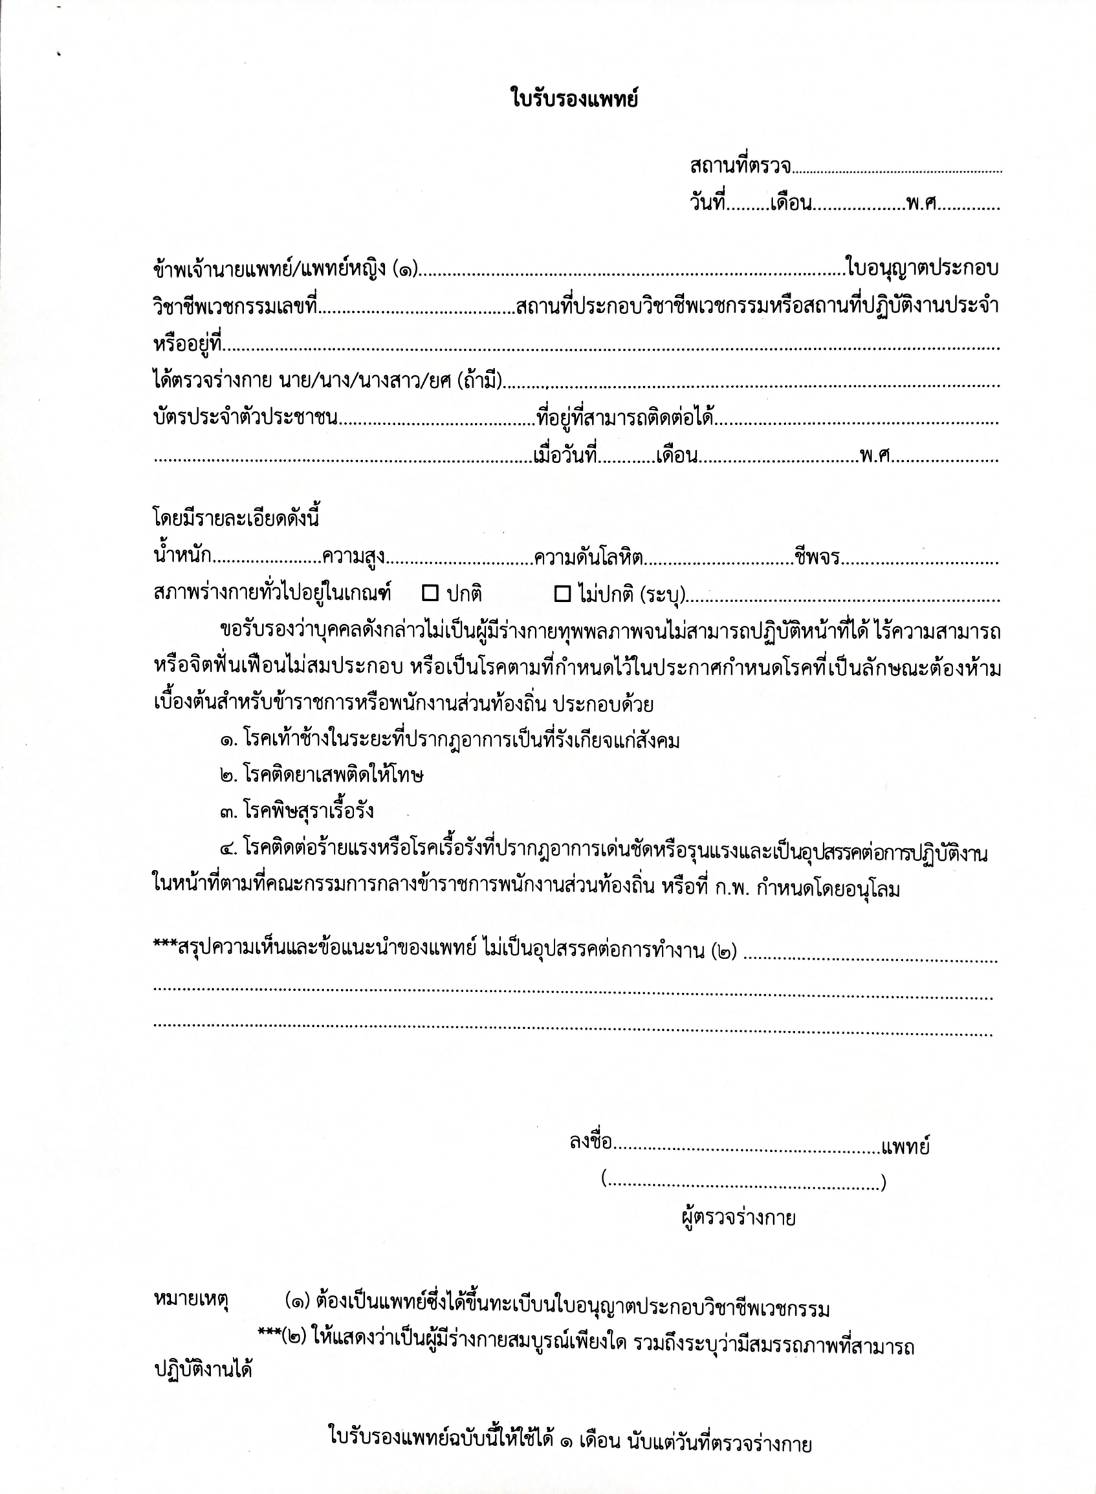 ใบรับรองแพทย์
สถานที่ตรวจ............................................................
วันที่.........เดือน...................พ.ศ.............
ข้าพเจ้านายแพทย์/แพทย์หญิง (๑).......................................................................................ใบอนุญาตประกอบ
วิชาชีพเวชกรรมเลขที่.........................................สถานที่ประกอบวิชาชีพเวชกรรมหรือสถานที่ปฏิบัติงานประจำ
หรืออยู่ที่................................................................................................................................................................
ได้ตรวจร่างกาย นาย/นาง/นางสาว/ยศ (ถ้ามี).......................................................................................................
บัตรประจำตัวประชาชน.........................................ที่อยู่ที่สามารถติดต่อได้...........................................................
..............................................................................เมื่อวันที่............เดือน.................................พ.ศ......................
โดยมีรายละเอียดดังนี้
น้ำหนัก.......................ความสูง...............................ความดันโลหิต...............................ชีพจร.................................
สภาพร่างกายทั่วไปอยู่ในเกณฑ์ ☐ ปกติ ☐ ไม่ปกติ (ระบุ).................................................................
ขอรับรองว่าบุคคลดังกล่าวไม่เป็นผู้มีร่างกายทุพพลภาพจนไม่สามารถปฏิบัติหน้าที่ได้ ไร้ความสามารถ
หรือจิตฟั่นเฟือนไม่สมประกอบ หรือเป็นโรคตามที่กำหนดไว้ในประกาศกำหนดโรคที่เป็นลักษณะต้องห้าม
เบื้องต้นสำหรับข้าราชการหรือพนักงานส่วนท้องถิ่น ประกอบด้วย
๑. โรคเท้าช้างในระยะที่ปรากฏอาการเป็นที่รังเกียจแก่สังคม
๒. โรคติดยาเสพติดให้โทษ
๓. โรคพิษสุราเรื้อรัง
๔. โรคติดต่อร้ายแรงหรือโรคเรื้อรังที่ปรากฏอาการเด่นชัดหรือรุนแรงและเป็นอุปสรรคต่อการปฏิบัติงาน
ในหน้าที่ตามที่คณะกรรมการกลางข้าราชการพนักงานส่วนท้องถิ่น หรือที่ ก.พ. กำหนดโดยอนุโลม
***สรุปความเห็นและข้อแนะนำของแพทย์ ไม่เป็นอุปสรรคต่อการทำงาน (๒) .....................................................
..............................................................................................................................................................................
..............................................................................................................................................................................
ลงชื่อ.......................................................แพทย์
(........................................................)
ผู้ตรวจร่างกาย
หมายเหตุ (๑) ต้องเป็นแพทย์ซึ่งได้ขึ้นทะเบียนใบอนุญาตประกอบวิชาชีพเวชกรรม
***(๒) ให้แสดงว่าเป็นผู้มีร่างกายสมบูรณ์เพียงใด รวมถึงระบุว่ามีสมรรถภาพที่สามารถ
ปฏิบัติงานได้
ใบรับรองแพทย์ฉบับนี้ให้ใช้ได้ ๑ เดือน นับแต่วันที่ตรวจร่างกาย